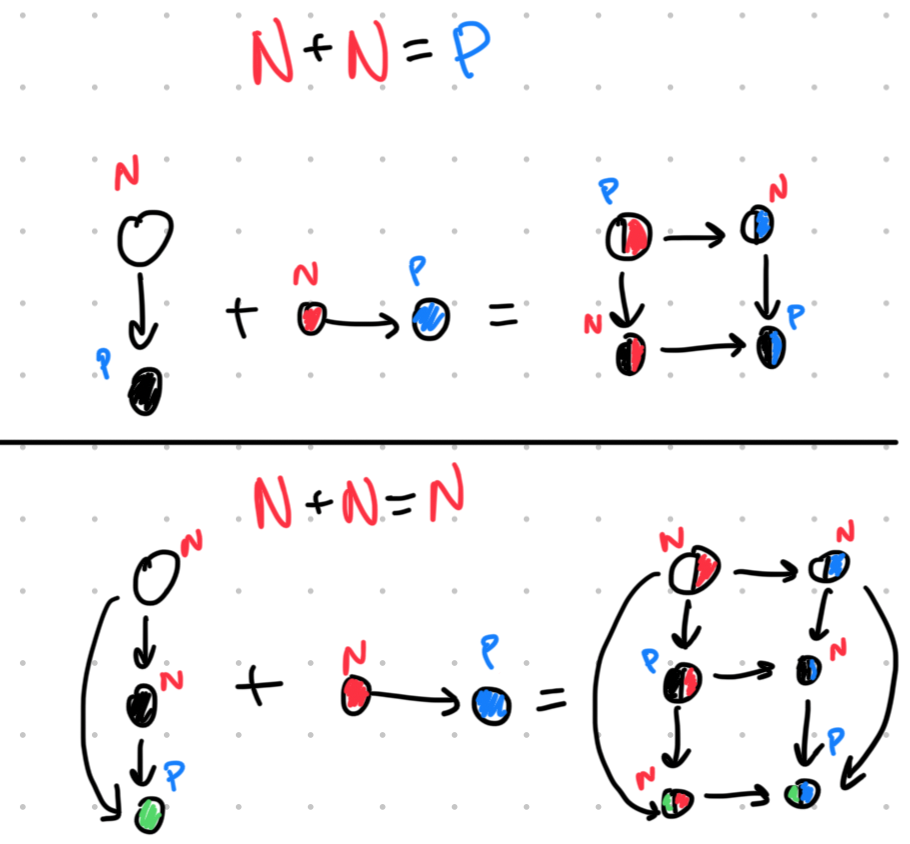 N+N=P
N
P
+
N
P
=
P
N
N
P
N+N=N
N
N
P
+
N
P
=
N
N
P
N
N
P